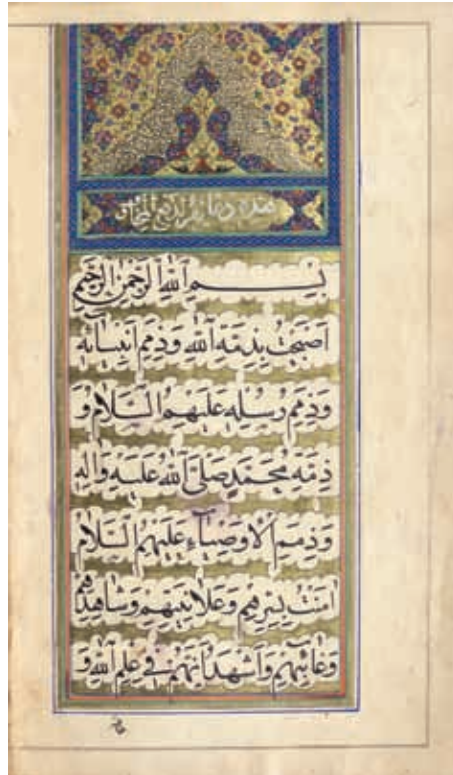 هذه دعا يقرأ لدفع المخاوف
بِسْمِ اللهِ الرَّحْمٰنِ الرَّحِيمِ
اَصْبَحْتُ بِذِمَّةِ اللهِ وَذِمَمِ اَنْبِيَائِهِ
وَذِمَمِ رُسُلِهِ عَلَيْهِمُ السَّلَامُ وَ
ذِمَّةِ مُحَمَّدٍ صَلَّى اللهُ عَلَيْهِ وَآلِهِ
وَذِمَمِ الْاَوْصِيَاءِ عَلَيْهِمُ السَّلَامُ
اٰمَنْتُ بِسِرِّهِمْ وَعَلَانِيَتِهِمْ وَشَاهِدِهِمْ
وَغَائِبِهِمْ وَاَشْهَدُ اَنَّهُمْ فِي عِلْمِ اللهِ وَ